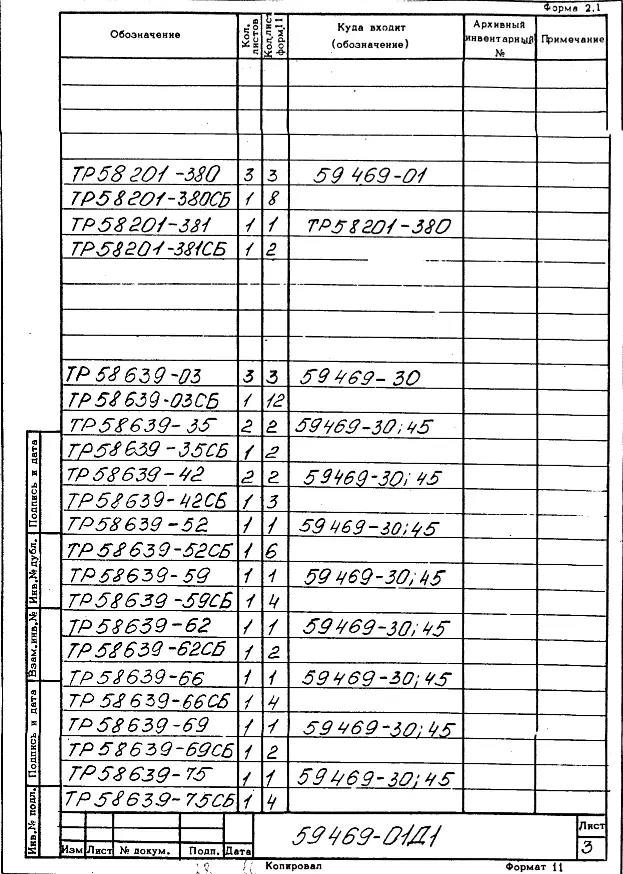 Форма 2.1
Обозначение Кол. листов Кол.лист форм.11 Куда входит (обозначение) Архивный инвентарный № Примечание
ТР58201-380 3 3 59469-01
ТР58201-380СБ 1 8
ТР58201-381 1 1 ТР58201-380
ТР58201-381СБ 1 2
ТР58639-03 3 3 59469-30
ТР58639-03СБ 1 12
ТР58639-35 2 2 59469-30;45
ТР58639-35СБ 1 2
ТР58639-42 2 2 59469-30;45
ТР58639-42СБ 1 3
ТР58639-52 1 1 59469-30;45
ТР58639-52СБ 1 6
ТР58639-59 1 1 59469-30;45
ТР58639-59СБ 1 4
ТР58639-62 1 1 59469-30;45
ТР58639-62СБ 1 2
ТР58639-66 1 1 59469-30;45
ТР58639-66СБ 1 4
ТР58639-69 1 1 59469-30;45
ТР58639-69СБ 1 2
ТР58639-75 1 1 59469-30;45
ТР58639-75СБ 1 4
Подпись и дата
Инв.№ дубл.
Взам.инв.№
Подпись и дата
Инв.№ подл.
59469-01Д1
Лист
3
Изм Лист № докум. Подп. Дата
Копировал Формат 11